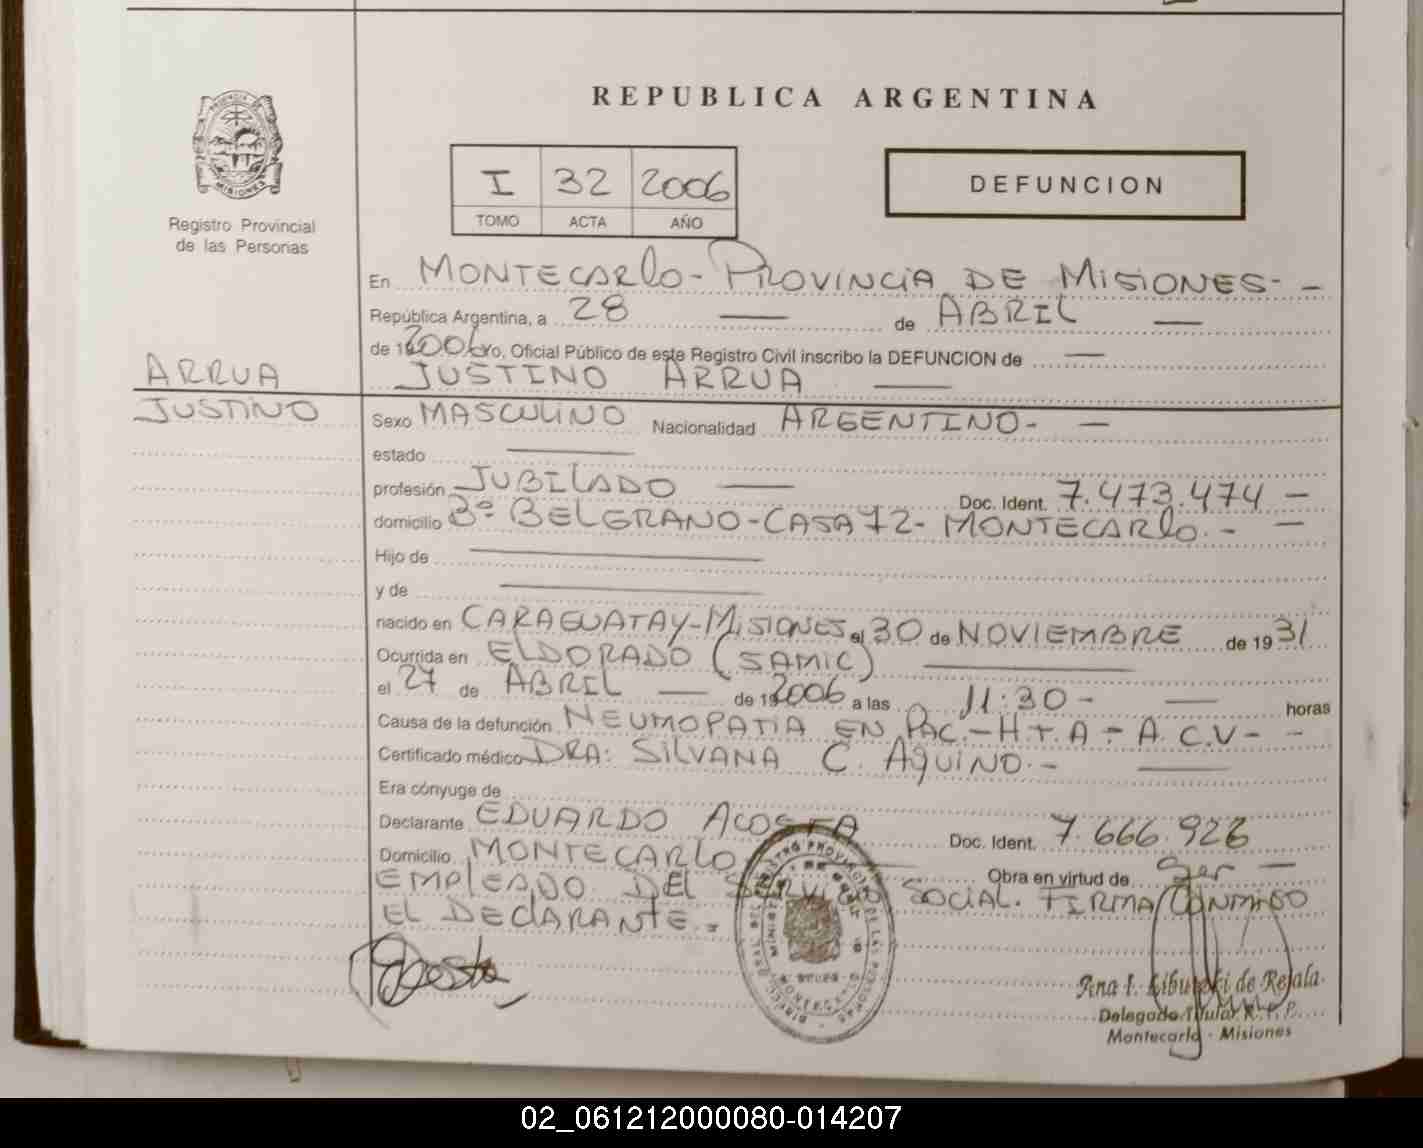 REPUBLICA ARGENTINA
Registro Provincial
de las Personas
I 32 2006
TOMO ACTA AÑO
DEFUNCION
En MONTECARLO - PROVINCIA DE MISIONES - -
República Argentina, a 28 — de ABRIL —
de 2006 Yo, Oficial Público de este Registro Civil inscribo la DEFUNCION de —
ARRUA
JUSTINO ARRUA —
JUSTINO
Sexo MASCULINO Nacionalidad ARGENTINO - —
estado —
profesión JUBILADO — Doc. Ident. 7.473.474 —
domicilio Bº BELGRANO - CASA 72 - MONTECARLO. - —
Hijo de —
y de —
nacido en CARAGUATAY - MISIONES el 30 de NOVIEMBRE de 1931
Ocurrida en ELDORADO (SAMIC) —
el 27 de ABRIL — de 2006 a las 11:30 - — horas
Causa de la defunción NEUMOPATIA EN PAC. - H T A - A. C. V - -
Certificado médico DRA: SILVANA C. AQUINO. - —
Era cónyuge de
Declarante EDUARDO ACOSTA Doc. Ident. 7.666.926
Domicilio MONTECARLO Obra en virtud de Ser —
EMPLEADO DEL SERVICIO SOCIAL. FIRMA CONMIGO
EL DECLARANTE. -
Acosta
Ana I. de Rejala
Delegado Titular R. P. P.
Montecarlo - Misiones
02_061212000080-014207